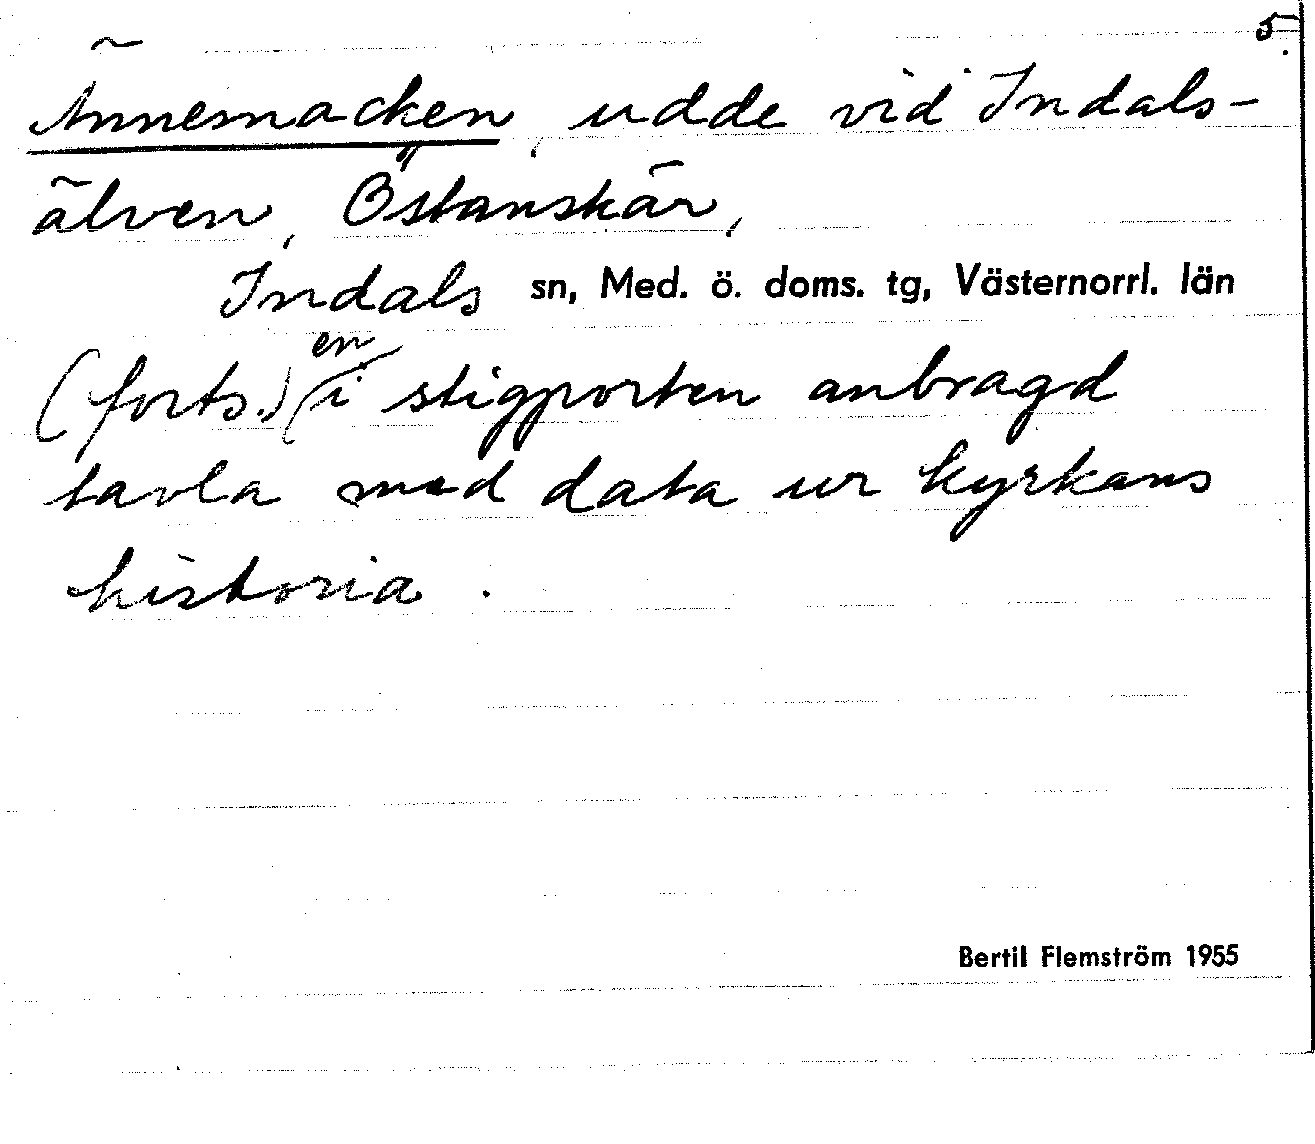 5.
Ännemacken, udde vid Indals-
älven, Östanskär,
Indals sn, Med. ö. doms. tg, Västernorrl. län
(forts.) en i stigporten anbragd
tavla med data ur kyrkans
historia.
Bertil Flemström 1955